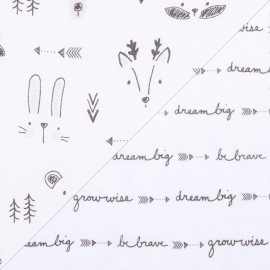 wise
dream big
dream big
dream big be brave
grow wise dream big
eam big be brave grow wise